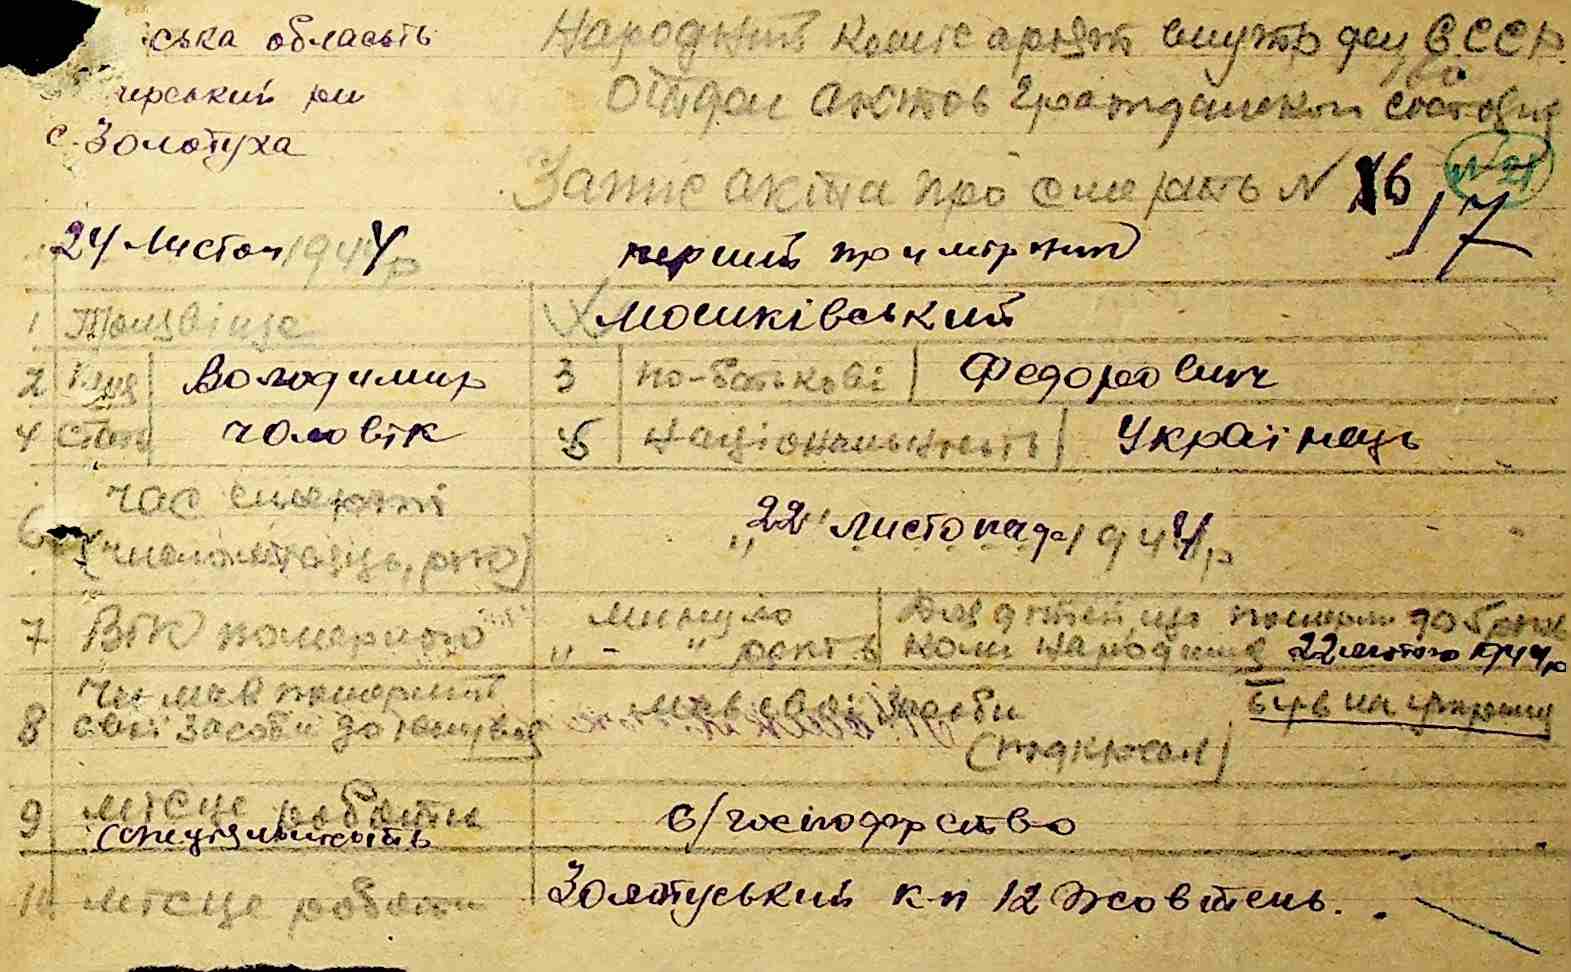 ська обласьть
Народний Коміс аріят внутр дел СССР
ирський рн
Отдел Актов Гражданской состояния
с. Золотуха
Запис акта про смерть N 16 17
24 Листоп 1944 р
перший примірник
1 Прізвіще Мошківський
2 Імя Володимир 3 по-батькові Федорович
4 Стать чоловік 5 Національність Українець
6 час смерті
(число, місяць, рік) "22" листопада 1944 р
7 Вік померлого минуло Для дітей, що померли до 5 рок
" - " років коли народився 22 лютого 1944 р
8 Чи мав померлий мав свої засоби був на утриман
свої засоби до існування
(підкреслити)
9 місце роботи
(спеціальність с/господарство
10 місце роботи Золотуський кп 12 Жовтень.